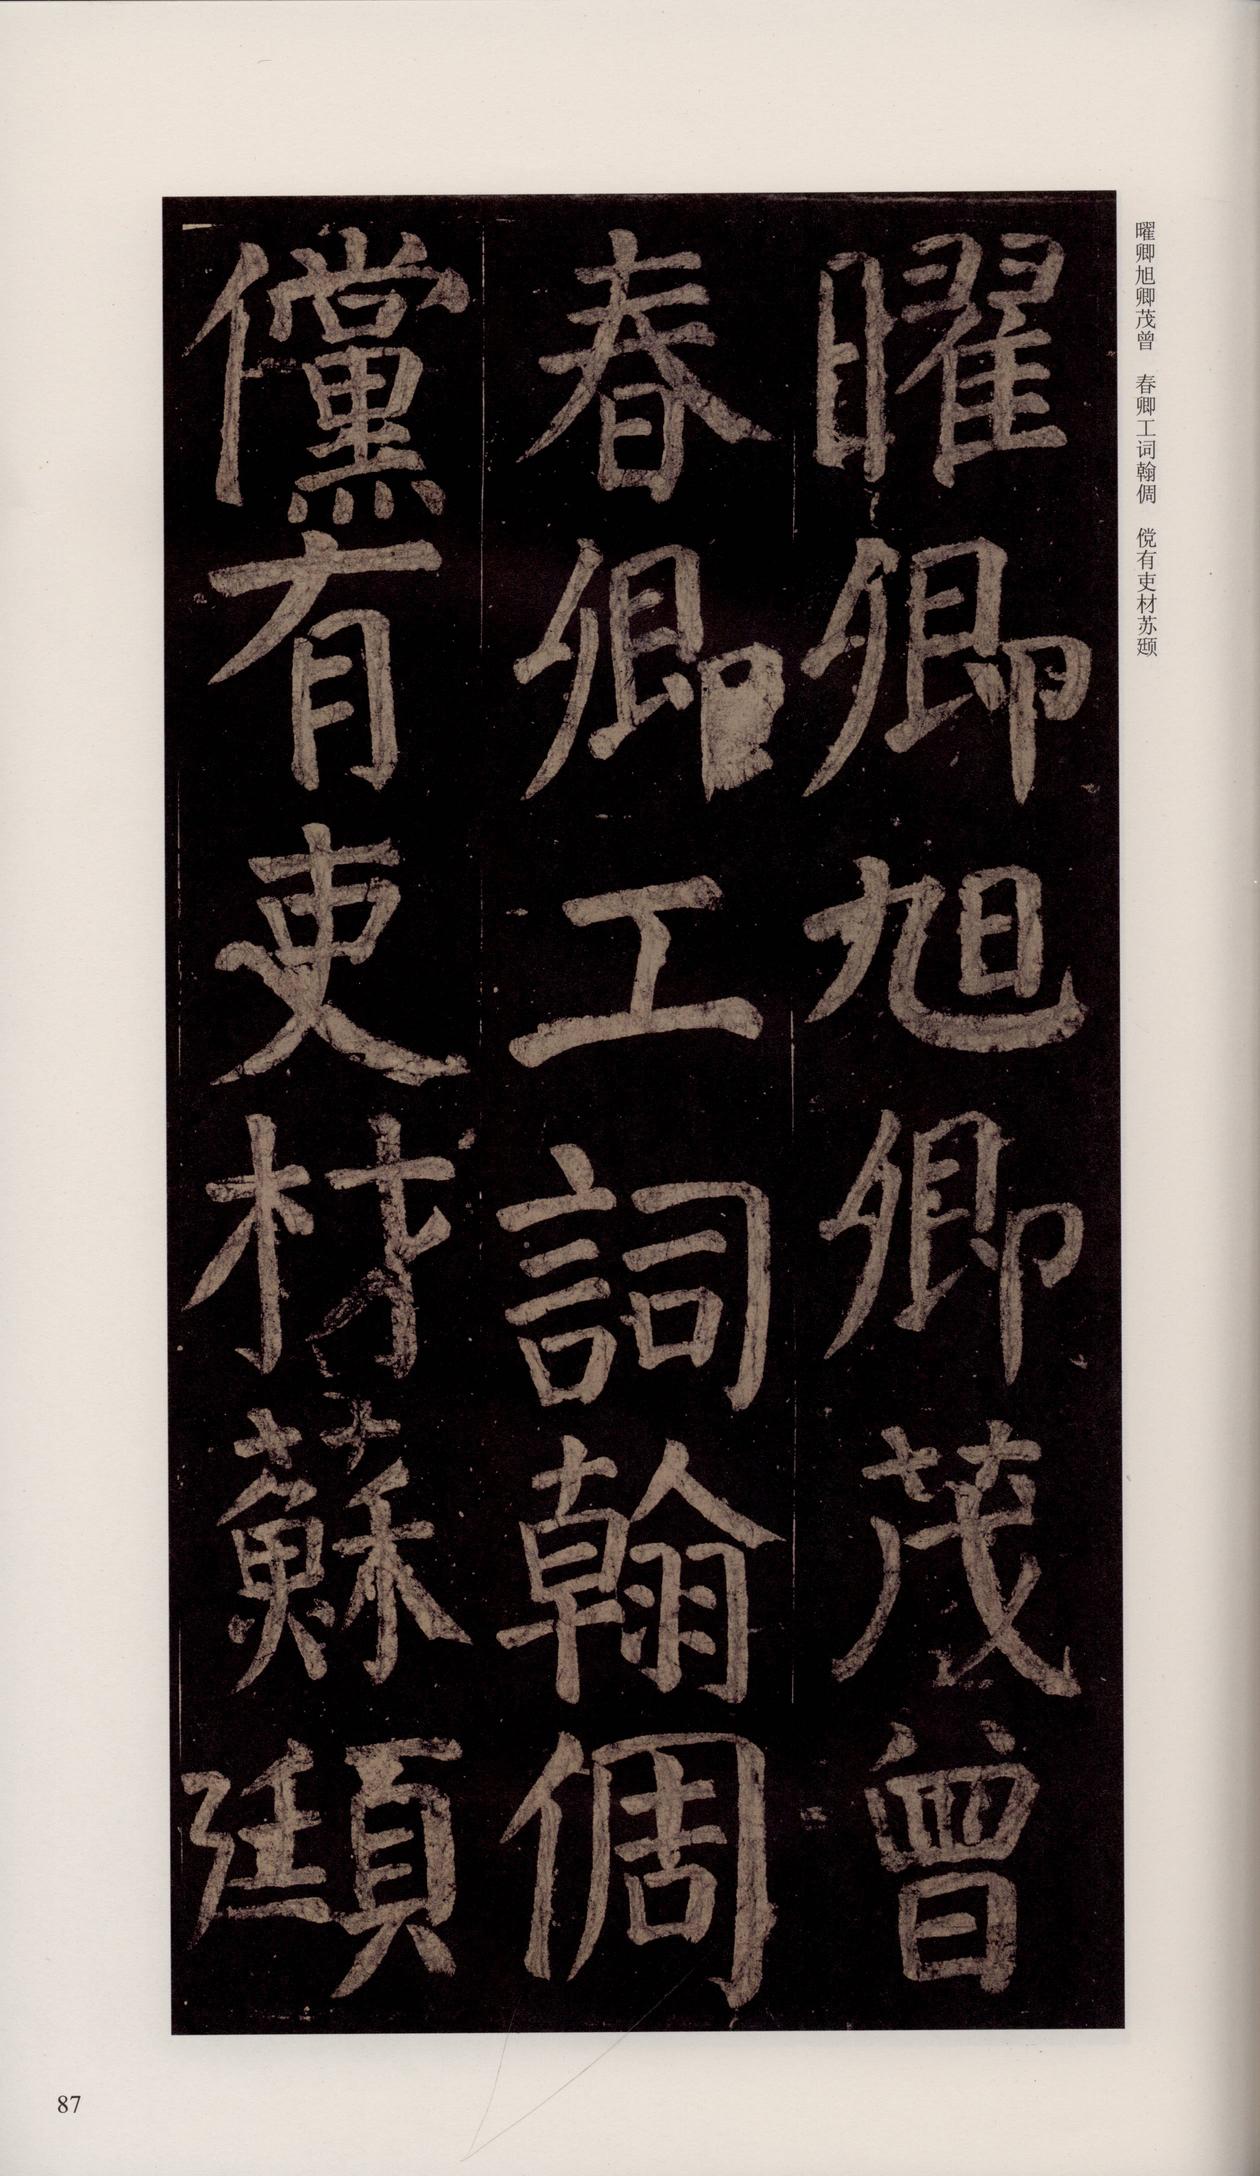 曜卿旭卿茂曾　春卿工词翰倜　傥有吏材苏颋
曜卿旭卿茂曾
春卿工詞翰倜
儻有吏材蘇頲
87